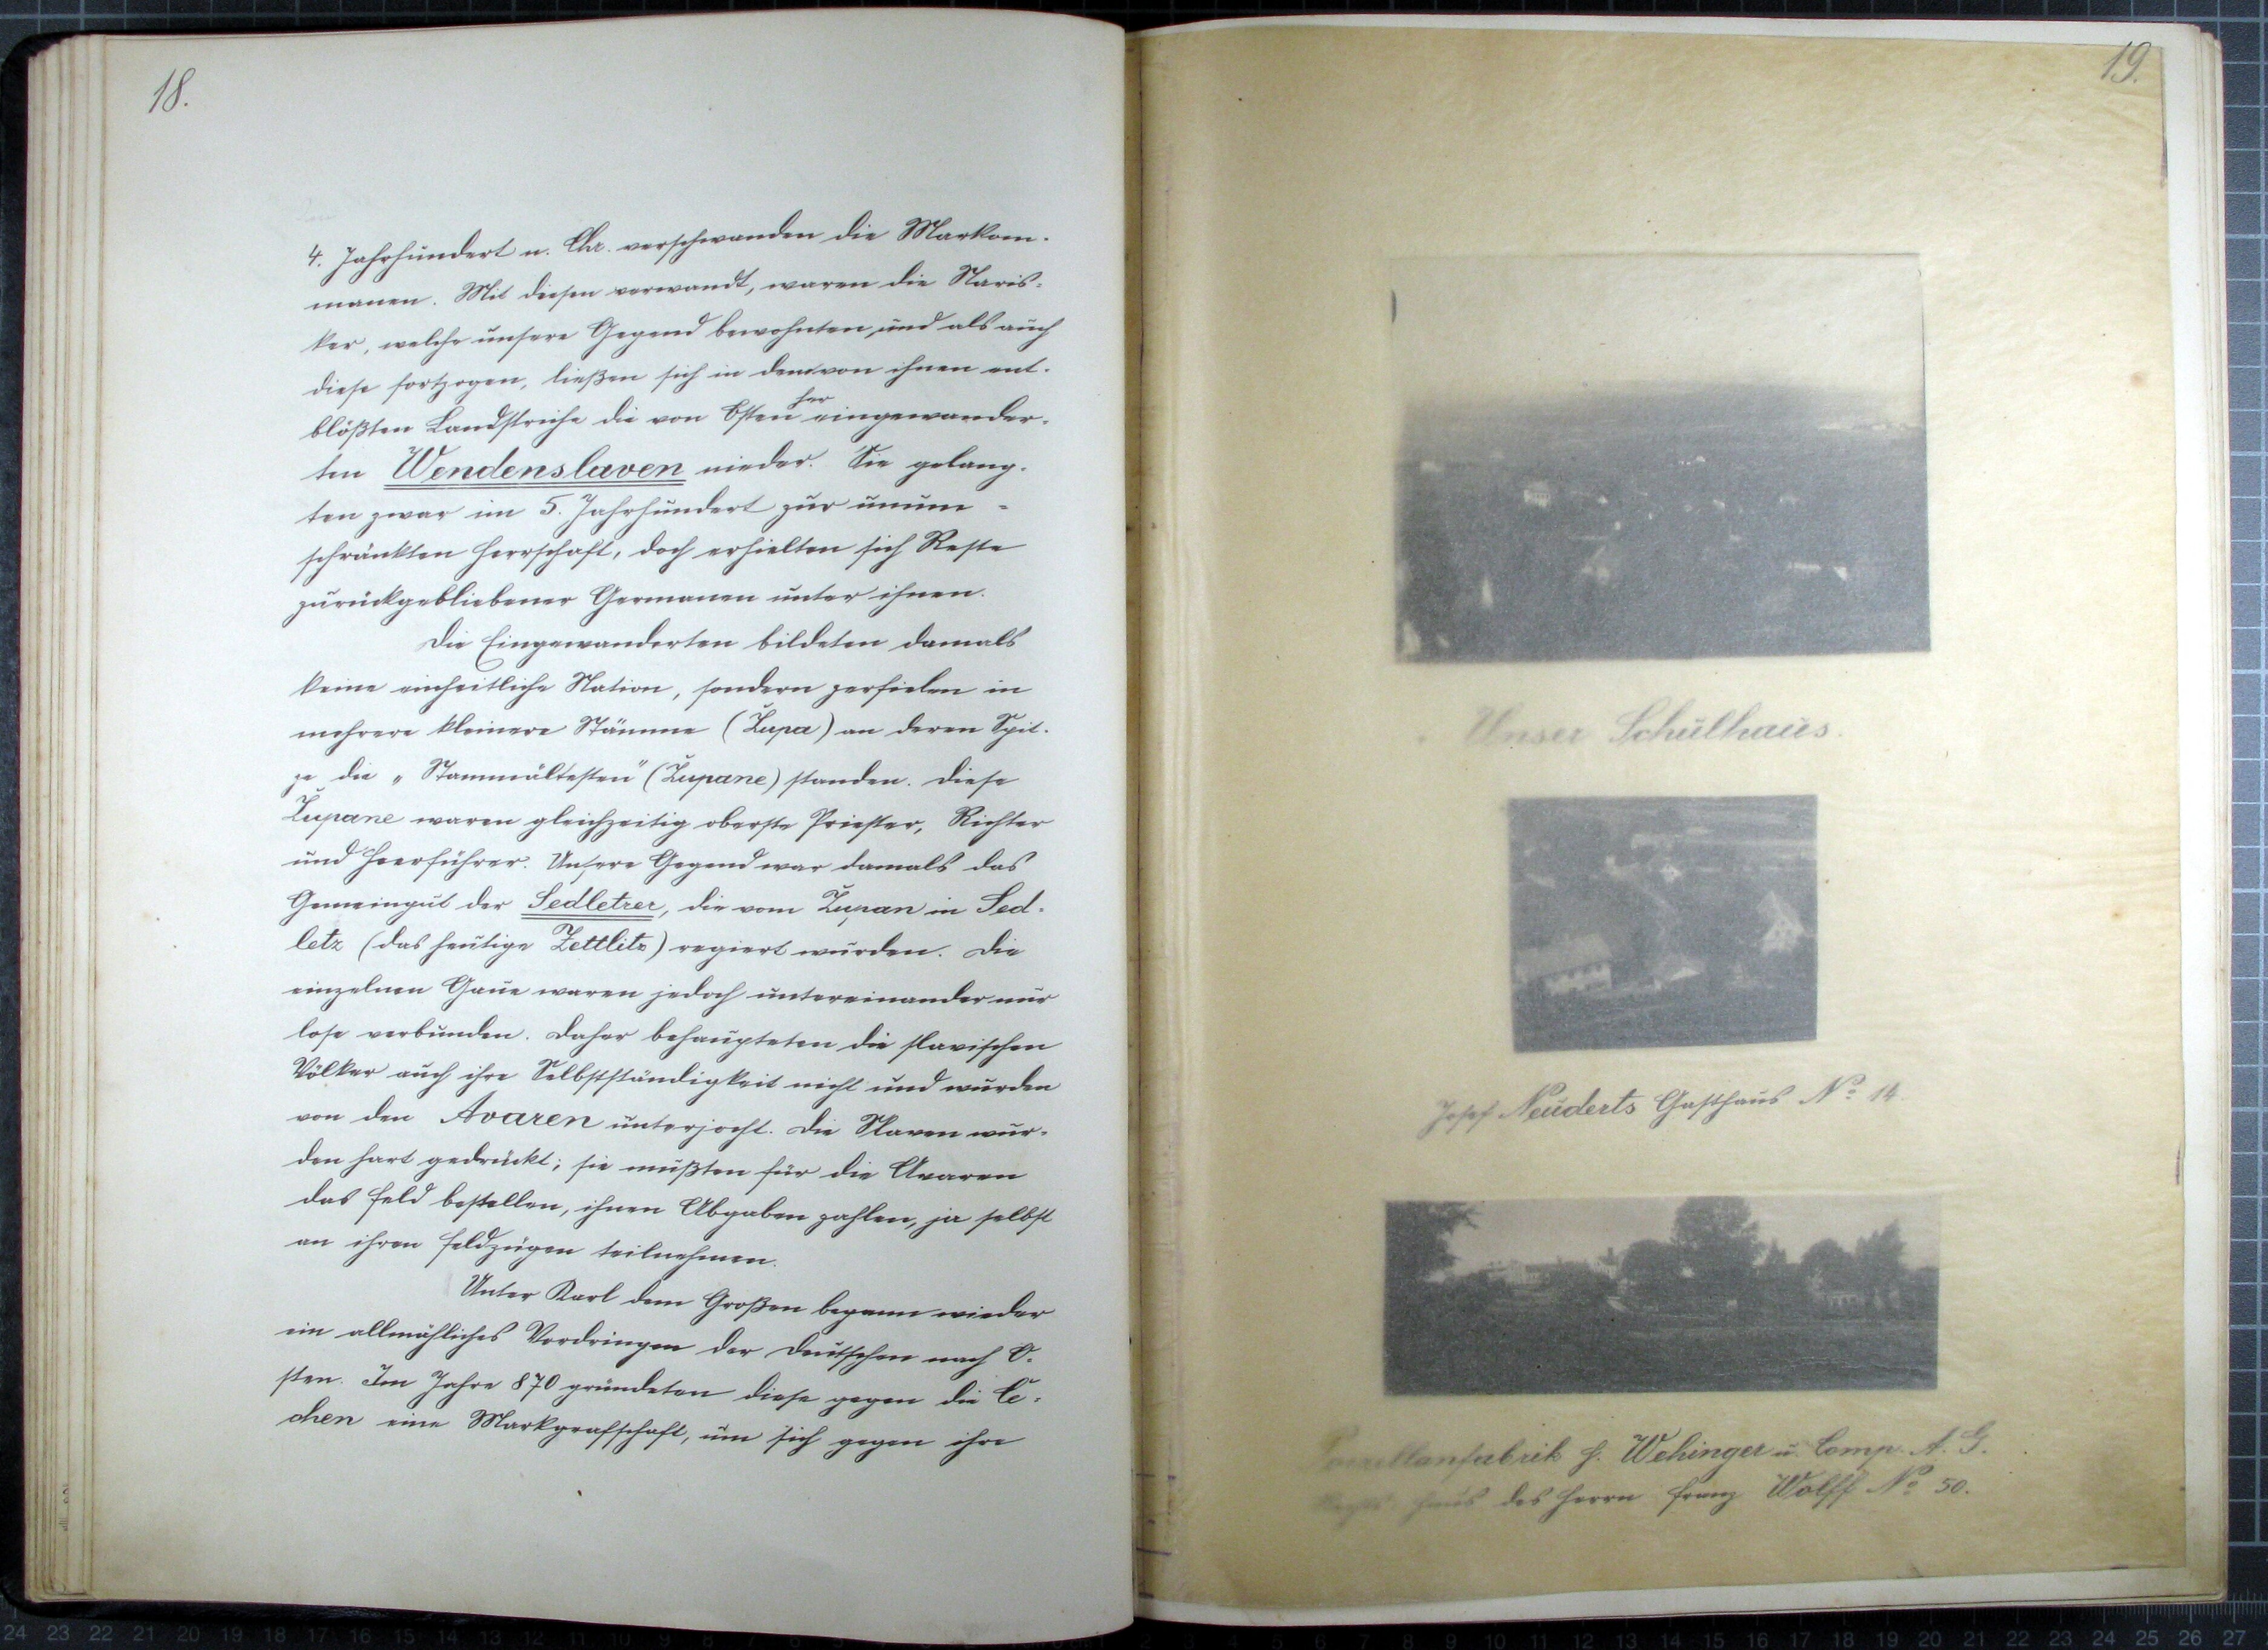 18.
4. Jahrhundert n. Chr. verschwanden die Markom-
manen. Mit diesen verwandt, waren die Naris-
ker, welche unsere Gegend bewohnten, und als auch
diese fortzogen, ließen sich in dem von ihnen ent-
blößten Landstriche die von Osten her eingewander-
ten Wendenslaven nieder. Sie gelang-
ten zwar im 5. Jahrhundert zur unum-
schränkten Herrschaft, doch erhielten sich Reste
zurückgebliebener Germanen unter ihnen.
Die Eingewanderten bildeten damals
keine einheitliche Nation, sondern zerfielen in
mehrere kleinere Stämme (Župa) an deren Spit-
ze die „Stammältesten" (Župane) standen. Diese
Župane waren gleichzeitig oberste Priester, Richter
und Heerführer. Unsere Gegend war damals das
Gemeingut der Sedletzer, die vom Župan in Sed-
letz (das heutige Zettlitz) regiert wurden. Die
einzelnen Gaue waren jedoch untereinander nur
lose verbunden. Daher behaupteten die slavischen
Völker auch ihre Selbstständigkeit nicht und wurden
von den Avaren unterjocht. Die Slaven wur-
den hart gedrückt; sie mußten für die Avaren
das Feld bestellen, ihnen Abgaben zahlen, ja selbst
an ihren Feldzügen teilnehmen.
Unter Karl dem Großen begann wieder
ein allmähliches Vordringen der Deutschen nach O-
sten. Im Jahre 870 gründeten diese gegen die Če-
chen eine Markgrafschaft, um sich gegen ihre
19.
Unser Schulhaus.
Josef Neuderts Gasthaus No 14.
Porzellanfabrik H. Wehinger u. Comp. A. G.
Rechts: Haus des Herrn Franz Wolff No 50.
24 23 22 21 20 19 18 17 16 15 14 13 12 11 10 9 8 7 6 5 4 3 2 1 1 2 3 4 5 6 7 8 9 10 11 12 13 14 15 16 17 18 19 20 21 22 23 24 25 26 27